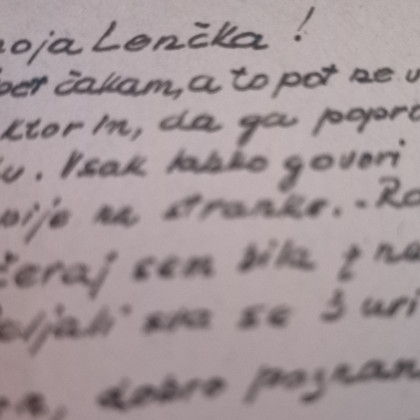 moja Lenčka!
pet čakam, a to pot ne u
ktor In, da ga popra
u. Vsak lahko govori
pije na stranke. - Ra
čeraj sem bila z na
peljali sva se 3 uri
dobro poznan